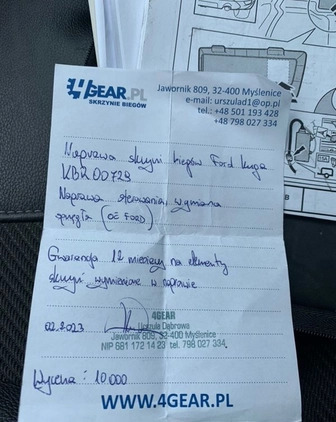 4GEAR.PL
SKRZYNIE BIEGÓW
Jawornik 809, 32-400 Myślenice
e-mail: urszulad1@op.pl
tel.: +48 501 193 428
+48 798 027 334
Naprawa skrzyni biegów Ford Kuga
KBR00729
Naprawa sterowania, wymiana
sprzęgła (OE FORD)
Gwarancja 12 miesięcy na elementy
skrzyni wymienione w naprawie
02.2023
4GEAR
Urszula Dąbrowa
Jawornik 809, 32-400 Myślenice
NIP 681 172 14 23 tel. 798 027 334
Wycena: 10.000
WWW.4GEAR.PL